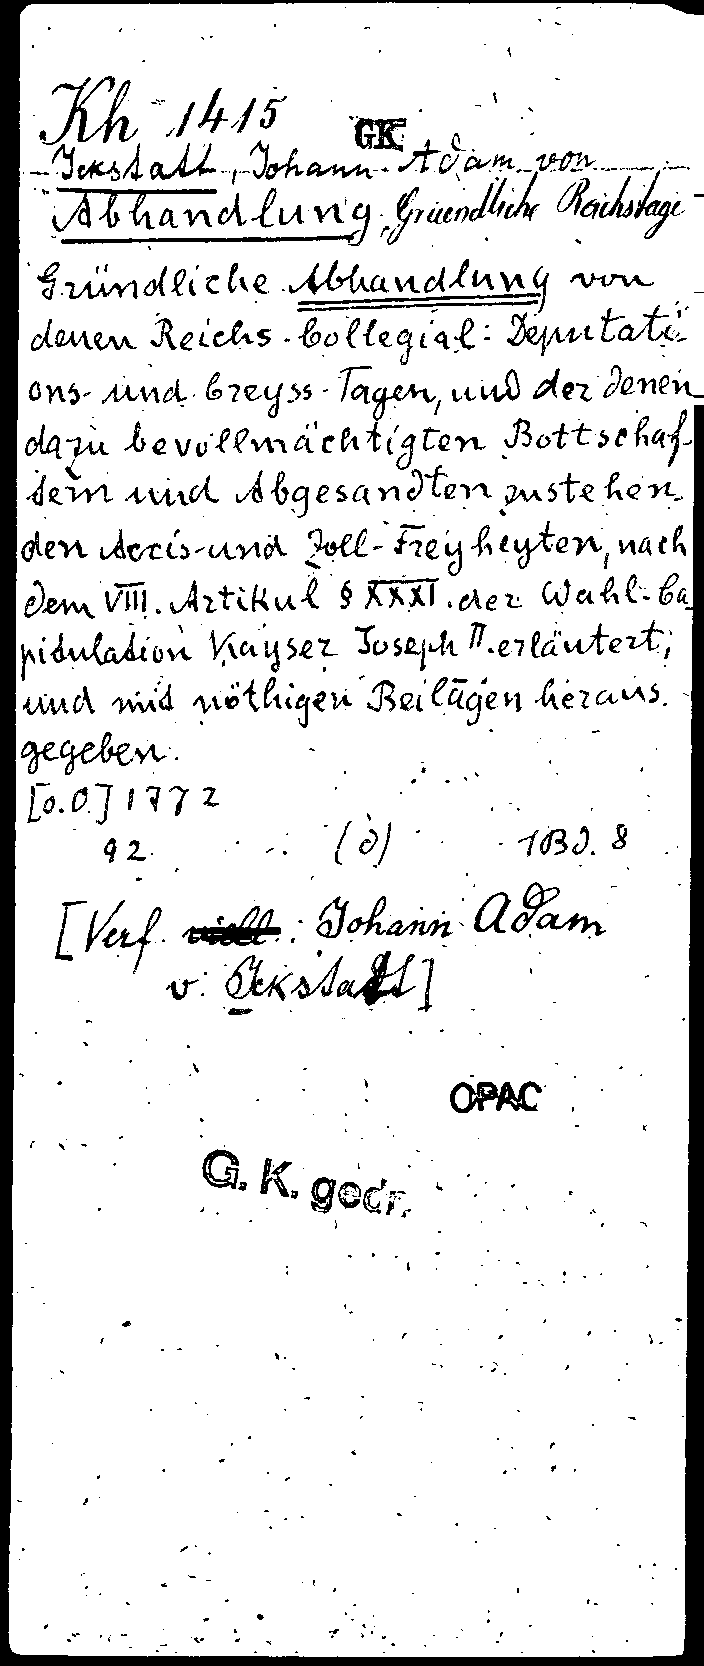 Kh 1415
GK
Ickstatt, Johann Adam von
Abhandlung, Gruendliche Reichstage
Gründliche Abhandlung von
denen Reichs-Collegial: Deputati-
ons- und Creyss-Tagen, und der denen
dazu bevollmächtigten Bottschaf-
tern und Abgesandten zustehen-
den Accis- und Zoll-Freyheyten, nach
dem VIII. Artikul § XXXI. der Wahl-Ca-
pitulation Kayser Joseph II. erläutert;
und mit nöthigen Beilagen heraus-
gegeben.
[o.O.] 1772
92 (d) 1 Bd. 8
[Verf. viell.: Johann Adam
v. Ickstatt]
OPAC
G. K. gedr.